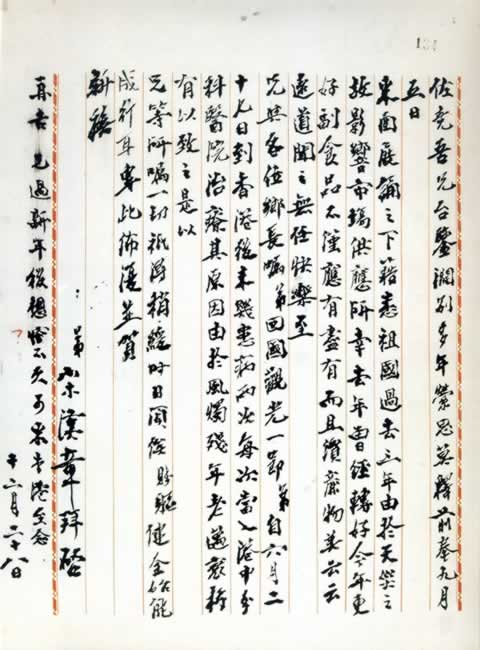 134
佐堯吾兄台鑒濶別多年縈思莫釋前奉九月
五日
來函展誦之下藉悉祖國過去三年由於天災之
故影響市場供應所幸去年曾經轉好今年更
好副食品不僅應有盡有而且價廉物美云云
遠道聞之無任快樂至
兄與各位鄉長囑弟回國觀光一節弟自六月二
十九日到香港後未幾患病兩次每次當入港中
科醫院治療其原因由於風燭殘年老邁衰朽
有以致之是以
兄等所囑一節祇得稍緩時日賤軀健全始能
成行耳專此佈復並賀
新禧
弟 漢章拜啓
再者兄過新年後想不久可來香港
十二月二十八日